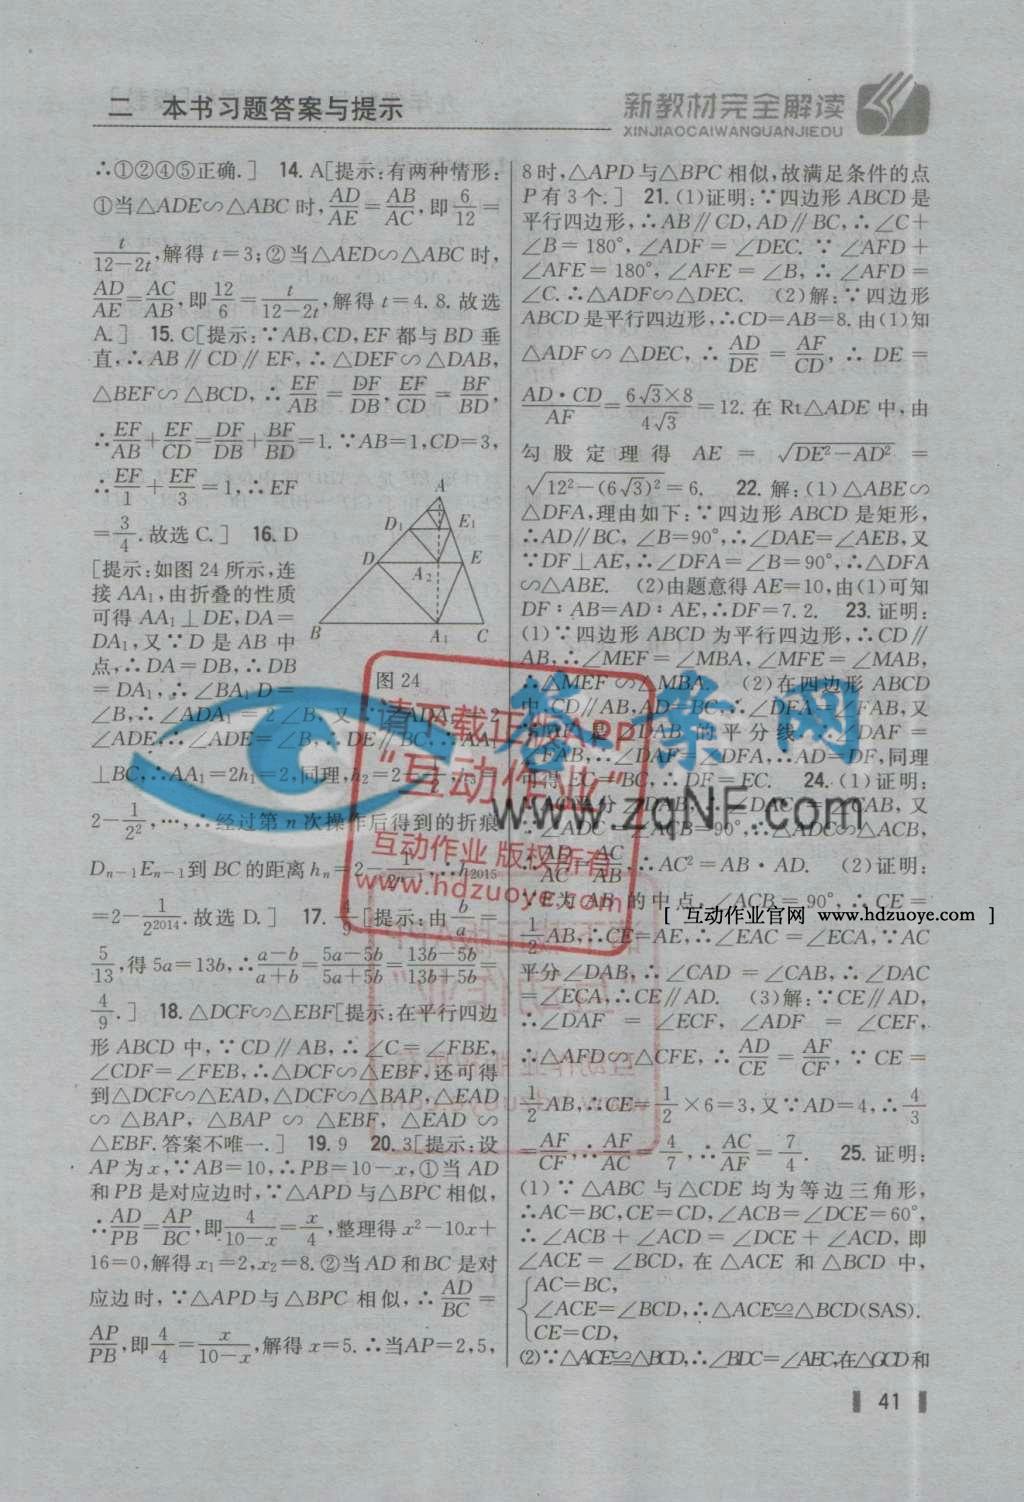 二 本书习题答案与提示
新教材完全解读
XINJIAOCAIWANQUANJIEDU
∴①②④⑤正确.] 14. A[提示:有两种情形:
①当△ADE∽△ABC时,AD/AE=AB/AC,即6/12=
t/(12-2t),解得t=3;②当△AED∽△ABC时,
AD/AE=AC/AB,即12/6=t/(12-2t),解得t=4.8.故选
A.] 15. C[提示:∵AB,CD,EF都与BD垂
直,∴AB∥CD∥EF,∴△DEF∽△DAB,
△BEF∽△BCD,∴EF/AB=DF/DB,EF/CD=BF/BD,
∴EF/AB+EF/CD=DF/DB+BF/BD=1.∵AB=1,CD=3,
∴EF/1+EF/3=1,∴EF
=3/4.故选C.] 16. D
[提示:如图24所示,连
接AA₁,由折叠的性质
可得AA₁⊥DE,DA=
DA₁,又∵D是AB中
点,∴DA=DB,∴DB
=DA₁,∴∠BA₁D=
A
D₁ E₁
D A₂ E
B A₁ C
图24
∠B,∴∠ADA₁=2∠B,又∵∠ADA₁=2
∠ADE,∴∠ADE=∠B,∴DE∥BC,∴AA₁
⊥BC,∴AA₁=2h₁=2,同理,h₂=2-
2-1/2²,…,∴经过第n次操作后得到的折痕
Dₙ₋₁Eₙ₋₁到BC的距离hₙ=2-
=2-1/2²⁰¹⁴.故选D.] 17. 4/9[提示:由b/a=
5/13,得5a=13b,∴(a-b)/(a+b)=(5a-5b)/(5a+5b)=(13b-5b)/(13b+5b)=
4/9.] 18. △DCF∽△EBF[提示:在平行四边
形ABCD中,∵CD∥AB,∴∠C=∠FBE,
∠CDF=∠FEB,∴△DCF∽△EBF,还可得
到△DCF∽△EAD,△DCF∽△BAP,△EAD
∽△BAP,△BAP∽△EBF,△EAD∽
△EBF.答案不唯一.] 19. 9 20. 3[提示:设
AP为x,∵AB=10,∴PB=10-x,①当AD
和PB是对应边时,∵△APD与△BPC相似,
∴AD/PB=AP/BC,即4/(10-x)=x/4,整理得x²-10x+
16=0,解得x₁=2,x₂=8.②当AD和BC是对
应边时,∵△APD与△BPC相似,∴AD/BC=
AP/PB,即4/4=x/(10-x),解得x=5.∴当AP=2,5,
8时,△APD与△BPC相似,故满足条件的点
P有3个.] 21. (1)证明:∵四边形ABCD是
平行四边形,∴AB∥CD,AD∥BC,∴∠C+
∠B=180°,∠ADF=∠DEC.∵∠AFD+
∠AFE=180°,∠AFE=∠B,∴∠AFD=
∠C.∴△ADF∽△DEC. (2)解:∵四边形
ABCD是平行四边形,∴CD=AB=8.由(1)知
△ADF∽△DEC,∴AD/DE=AF/CD,∴DE=
AD·CD/AF=6√3×8/4√3=12.在Rt△ADE中,由
勾股定理得AE=√(DE²-AD²)=
√(12²-(6√3)²)=6. 22. 解:(1)△ABE∽
△DFA,理由如下:∵四边形ABCD是矩形,
∴AD∥BC,∠B=90°,∴∠DAE=∠AEB,又
∵DF⊥AE,∴∠DFA=∠B=90°,∴△DFA
∽△ABE. (2)由题意得AE=10,由(1)可知
DF∶AB=AD∶AE,∴DF=7.2. 23. 证明:
(1)∵四边形ABCD为平行四边形,∴CD∥
AB,∴∠MEF=∠MBA,∠MFE=∠MAB,
∴△MEF∽△MBA. (2)在四边形ABCD
中,CD∥AB,AD∥BC,∴∠DFA=∠FAB,又
∵AF是∠DAB的平分线,∴∠DAF=
∠FAB,∴∠DAF=∠DFA,∴AD=DF,同理
可得EC=BC,∴DF=EC. 24. (1)证明:
∵AC平分∠DAB,∴∠DAC=∠CAB,又
∵∠ADC=∠ACB=90°,∴△ADC∽△ACB,
∴AD/AC=AC/AB,∴AC²=AB·AD. (2)证明:
∵E为AB的中点,∠ACB=90°,∴CE=
1/2AB,∴CE=AE,∴∠EAC=∠ECA,∵AC
平分∠DAB,∴∠CAD=∠CAB,∴∠DAC
=∠ECA,∴CE∥AD. (3)解:∵CE∥AD,
∴∠DAF=∠ECF,∠ADF=∠CEF,
∴△AFD∽△CFE,∴AD/CE=AF/CF,∵CE=
1/2AB,∴CE=1/2×6=3,又∵AD=4,∴4/3
=AF/CF,∴AF/AC=4/7,∴AC/AF=7/4. 25. 证明:
(1)∵△ABC与△CDE均为等边三角形,
∴AC=BC,CE=CD,∠ACB=∠DCE=60°,
∴∠ACB+∠ACD=∠DCE+∠ACD,即
∠ACE=∠BCD,在△ACE和△BCD中,
AC=BC,
∠ACE=∠BCD,∴△ACE≌△BCD(SAS).
CE=CD,
(2)∵△ACE≌△BCD,∴∠BDC=∠AEC,在△GCD和
41
请下载正版APP
“互动作业”
互动作业 版权所有
www.hdzuoye.com
答案网
www.zqNF.com
[ 互动作业官网 www.hdzuoye.com ]